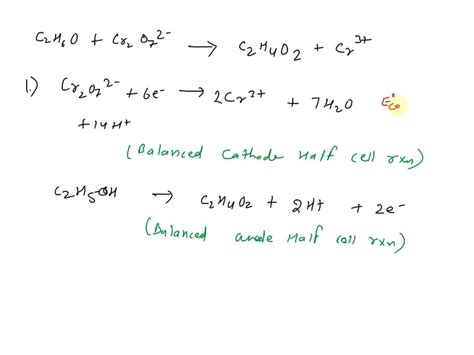 C2H6O + Cr2O7²⁻ → C2H4O2 + Cr³⁺
1.) Cr2O7²⁻ + 6e⁻ → 2Cr³⁺ + 7H2O E°
+ 14H⁺
(Balanced Cathode Half cell rxn)
C2H5OH → C2H4O2 + 2H+ + 2e⁻
(Balanced anode Half cell rxn)